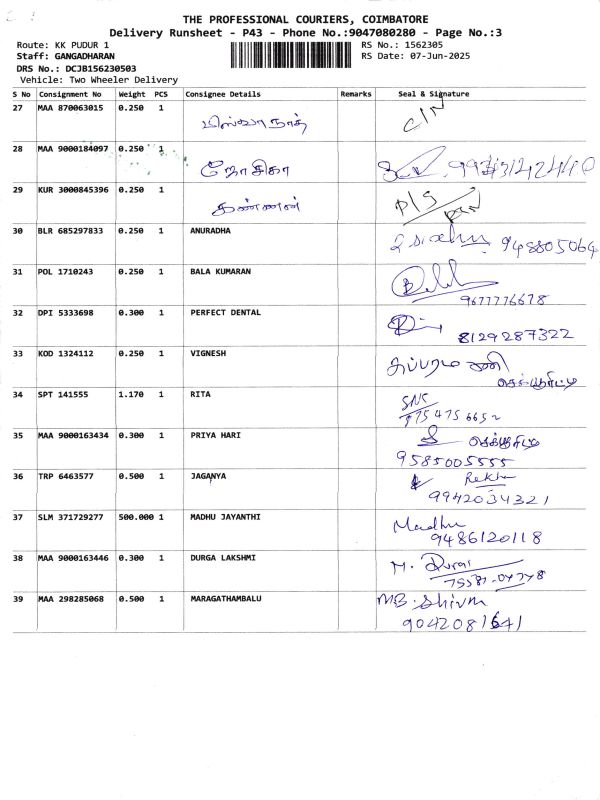 THE PROFESSIONAL COURIERS, COIMBATORE
Delivery Runsheet - P43 - Phone No.:9047080280 - Page No.:3
Route: KK PUDUR 1 RS No.: 1562305
Staff: GANGADHARAN RS Date: 07-Jun-2025
DRS No.: DCJB156230503
Vehicle: Two Wheeler Delivery
S No Consignment No Weight PCS Consignee Details Remarks Seal & Signature
27 MAA 870063015 0.250 1 விஸ்வநாத் C/N
28 MAA 9000184097 0.250 1 ஜோசிகா
29 KUR 3000845396 0.250 1 கண்ணன் P/S
30 BLR 685297833 0.250 1 ANURADHA 948805064
31 POL 1710243 0.250 1 BALA KUMARAN
9677776678
32 DPI 5333698 0.300 1 PERFECT DENTAL 8129287322
33 KOD 1324112 0.250 1 VIGNESH சுப்பரமணி
செக்யூரிட்டி
34 SPT 141555 1.170 1 RITA
35 MAA 9000163434 0.300 1 PRIYA HARI செக்யூரிட்டி
9585005555
36 TRP 6463577 0.500 1 JAGANYA Rekha
9942034321
37 SLM 371729277 500.000 1 MADHU JAYANTHI Madhu
9486120118
38 MAA 9000163446 0.300 1 DURGA LAKSHMI M. Durai
39 MAA 298285068 0.500 1 MARAGATHAMBALU MB. Shivm